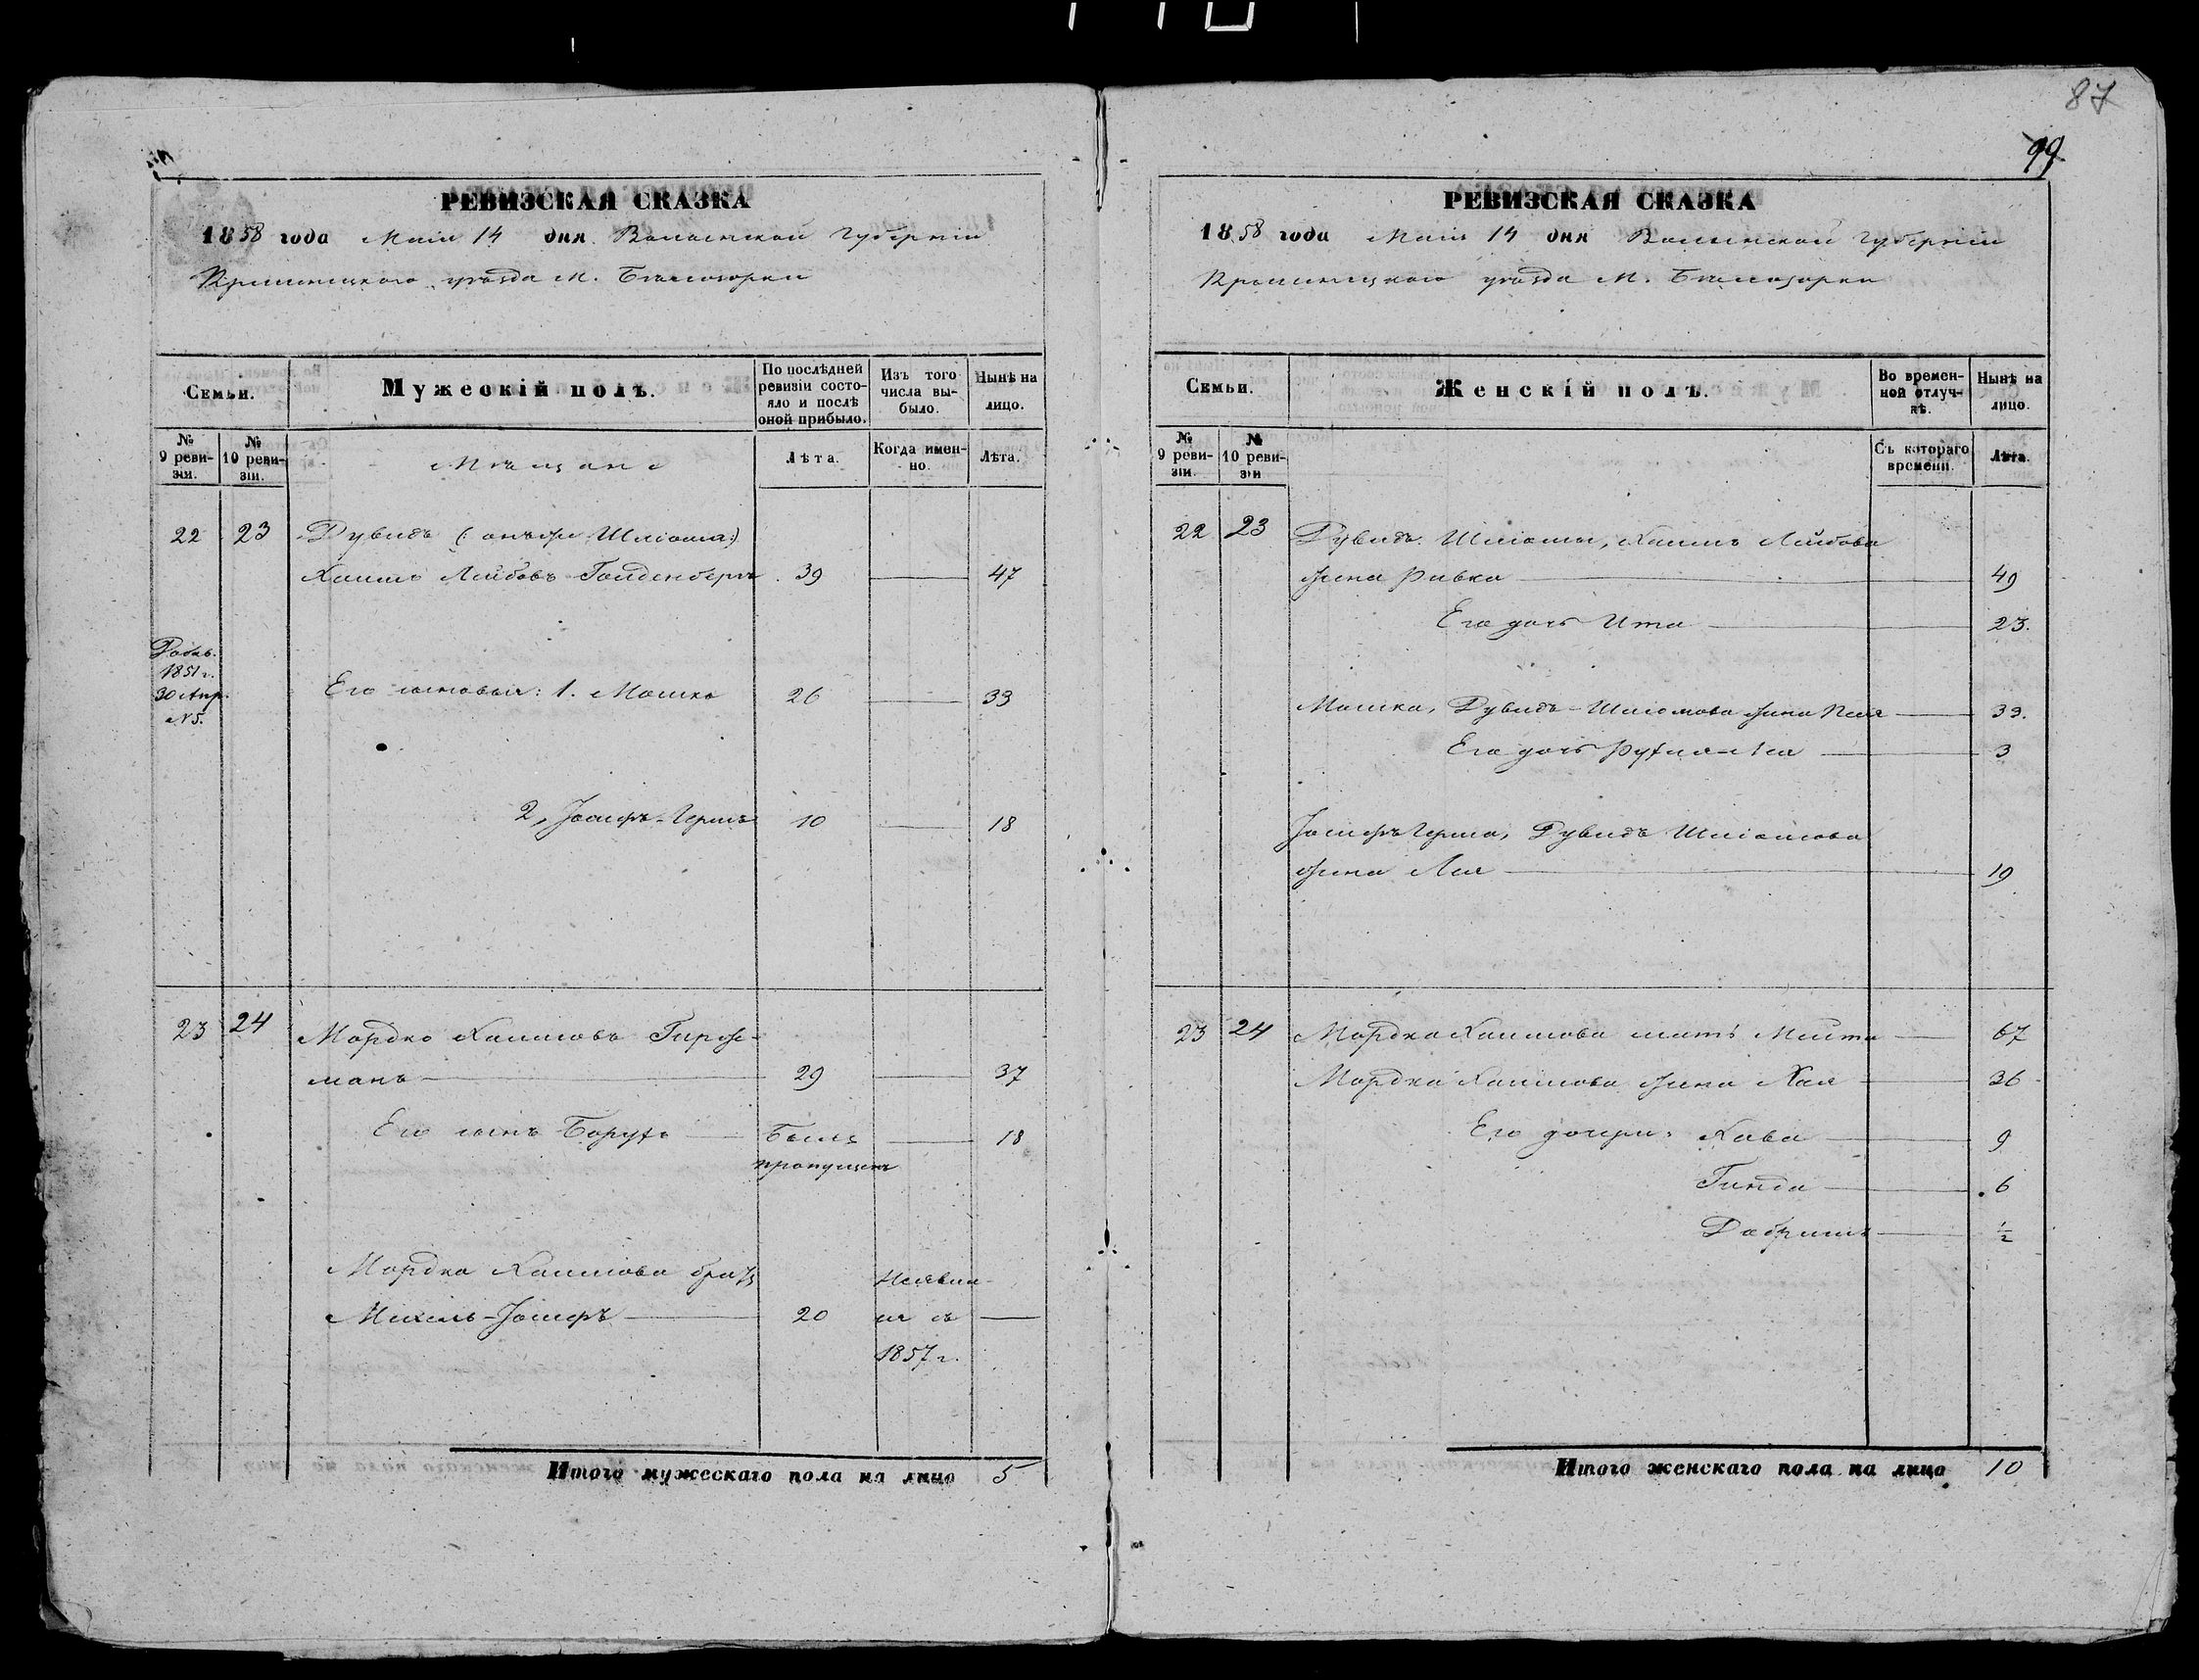 87
99
РЕВИЗСКАЯ СКАЗКА
1858 года Маія 14 дня Волынской Губерніи
Кременецкаго уѣзда м. Бѣлозорки
Семьи.
Мужескій полъ.
По послѣдней ревизіи состояло и послѣ оной прибыло.
Изъ того числа выбыло.
Нынѣ на лицо.
№ 9 ревизіи.
№ 10 ревизіи.
Мѣщане
Лѣта.
Когда именно.
Лѣта.
22 23 Дувидъ (: онъ же Шліома:)
Хаимъ Лейбовъ Гольденберъ 39 — 47
Добав.
1851 г.
30 Апр.
№ 5.
Его сыновья: 1. Мошко 26 — 33
2, Іосифъ-Гершъ 10 — 18
23 24 Мордко Хаимовъ Гирж-
манъ — 29 — 37
Его сынъ Борухъ — Былъ — 18
пропущенъ
Мордка Хаимова братъ
Михель-Іосифъ — 20 —
Неявил-
ся съ
1857 г.
Итого мужескаго пола на лицо 5
РЕВИЗСКАЯ СКАЗКА
1858 года Маія 14 дня Волынской Губерніи
Кременецкаго уѣзда м. Бѣлозорки
Семьи.
Женскій полъ.
Во временной отлучкѣ.
Нынѣ на лицо.
№ 9 ревизіи.
№ 10 ревизіи
Съ котораго времени.
Лѣта.
22 23 Дувидъ Шліомы, Хаимъ Лейбова
жена Ривка — 49
Его дочь Ита — 23.
Мошка, Дувидъ-Шліомова жена Песя — 33.
Его дочь Рухля-Лея — 3
Іосифъ Герша, Дувидъ Шліомова
жена Лея — 19
23 24 Мордка Хаимова мать Меита — 67
Мордка Хаимова жена Хая — 36
Его дочери: Хава — 9
Гинда — 6
Добришъ — ½
Итого женскаго пола на лицо 10